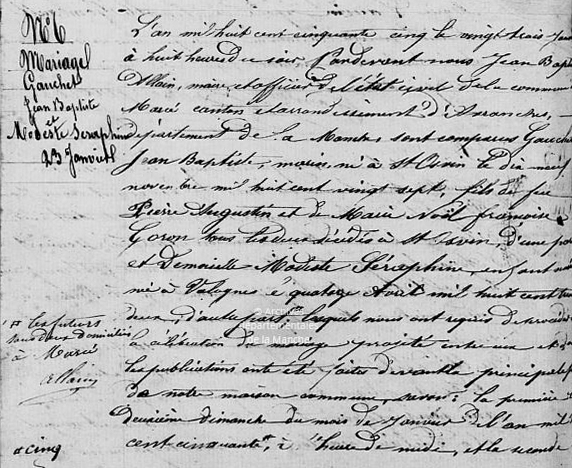 No 6
Mariage
Gauchet
Jean Baptiste
et
Modeste Seraphine
23 Janvier
L'an mil huit cent cinquante cinq le vingt trois Janv
à huit heures du soir Pardevant nous Jean Bapt
Allain, maire, et officier de l'état civil de la commune
Marcé canton et arrondissement d'Avranches,
département de la Manche, sont comparus Gauche
Jean Baptiste, né à St Osvin le dix neuf
novembre mil huit cent vingt sept, fils de feu
Pierre Augustin et de Marie Noël françoise
Goron tous les deux décédés à St Osvin, d'une pa
et Demoiselle Modeste Séraphine, enfant
née à Valognes le quatorze Avril mil huit cent tren
deux, d'autre part lesquels nous ont requis de procéde
à la célébration du mariage projeté entre eux et
les publications ont été faites devant la principale p
de notre maison commune, savoir: la première
Deuxième dimanche du mois de Janvier de l'an mil
cent cinquante #, à l'heure de midi, et la seconde
# les futurs
tous deux domiciliés
à Marcé
Allain
# cinq
© Archives
départementales
de la Manche